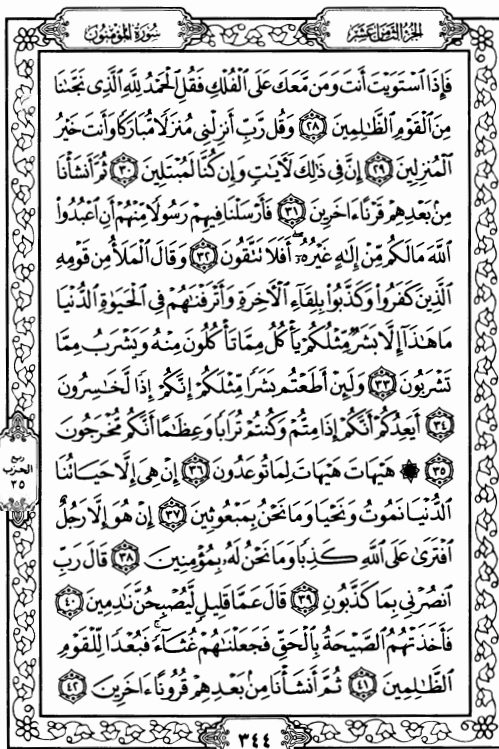 الجزء الثامن عشر
سورة المؤمنون
فَإِذَا ٱسْتَوَيْتَ أَنتَ وَمَن مَّعَكَ عَلَى ٱلْفُلْكِ فَقُلِ ٱلْحَمْدُ لِلَّهِ ٱلَّذِى نَجَّىٰنَا
مِنَ ٱلْقَوْمِ ٱلظَّـٰلِمِينَ ٢٨ وَقُل رَّبِّ أَنزِلْنِى مُنزَلًا مُّبَارَكًا وَأَنتَ خَيْرُ
ٱلْمُنزِلِينَ ٢٩ إِنَّ فِى ذَٰلِكَ لَـَٔايَـٰتٍ وَإِن كُنَّا لَمُبْتَلِينَ ٣٠ ثُمَّ أَنشَأْنَا
مِنۢ بَعْدِهِمْ قَرْنًا ءَاخَرِينَ ٣١ فَأَرْسَلْنَا فِيهِمْ رَسُولًا مِّنْهُمْ أَنِ ٱعْبُدُوا۟
ٱللَّهَ مَا لَكُم مِّنْ إِلَـٰهٍ غَيْرُهُۥٓ أَفَلَا تَتَّقُونَ ٣٢ وَقَالَ ٱلْمَلَأُ مِن قَوْمِهِ
ٱلَّذِينَ كَفَرُوا۟ وَكَذَّبُوا۟ بِلِقَآءِ ٱلْـَٔاخِرَةِ وَأَتْرَفْنَـٰهُمْ فِى ٱلْحَيَوٰةِ ٱلدُّنْيَا
مَا هَـٰذَآ إِلَّا بَشَرٌ مِّثْلُكُمْ يَأْكُلُ مِمَّا تَأْكُلُونَ مِنْهُ وَيَشْرَبُ مِمَّا
تَشْرَبُونَ ٣٣ وَلَئِنْ أَطَعْتُم بَشَرًا مِّثْلَكُمْ إِنَّكُمْ إِذًا لَّخَـٰسِرُونَ
٣٤ أَيَعِدُكُمْ أَنَّكُمْ إِذَا مِتُّمْ وَكُنتُمْ تُرَابًا وَعِظَـٰمًا أَنَّكُم مُّخْرَجُونَ
٣٥ ۞ هَيْهَاتَ هَيْهَاتَ لِمَا تُوعَدُونَ ٣٦ إِنْ هِىَ إِلَّا حَيَاتُنَا
ٱلدُّنْيَا نَمُوتُ وَنَحْيَا وَمَا نَحْنُ بِمَبْعُوثِينَ ٣٧ إِنْ هُوَ إِلَّا رَجُلٌ
ٱفْتَرَىٰ عَلَى ٱللَّهِ كَذِبًا وَمَا نَحْنُ لَهُۥ بِمُؤْمِنِينَ ٣٨ قَالَ رَبِّ
ٱنصُرْنِى بِمَا كَذَّبُونِ ٣٩ قَالَ عَمَّا قَلِيلٍ لَّيُصْبِحُنَّ نَـٰدِمِينَ ٤٠
فَأَخَذَتْهُمُ ٱلصَّيْحَةُ بِٱلْحَقِّ فَجَعَلْنَـٰهُمْ غُثَآءً فَبُعْدًا لِّلْقَوْمِ
ٱلظَّـٰلِمِينَ ٤١ ثُمَّ أَنشَأْنَا مِنۢ بَعْدِهِمْ قُرُونًا ءَاخَرِينَ ٤٢
ربع
الحزب
٣٥
٣٤٤